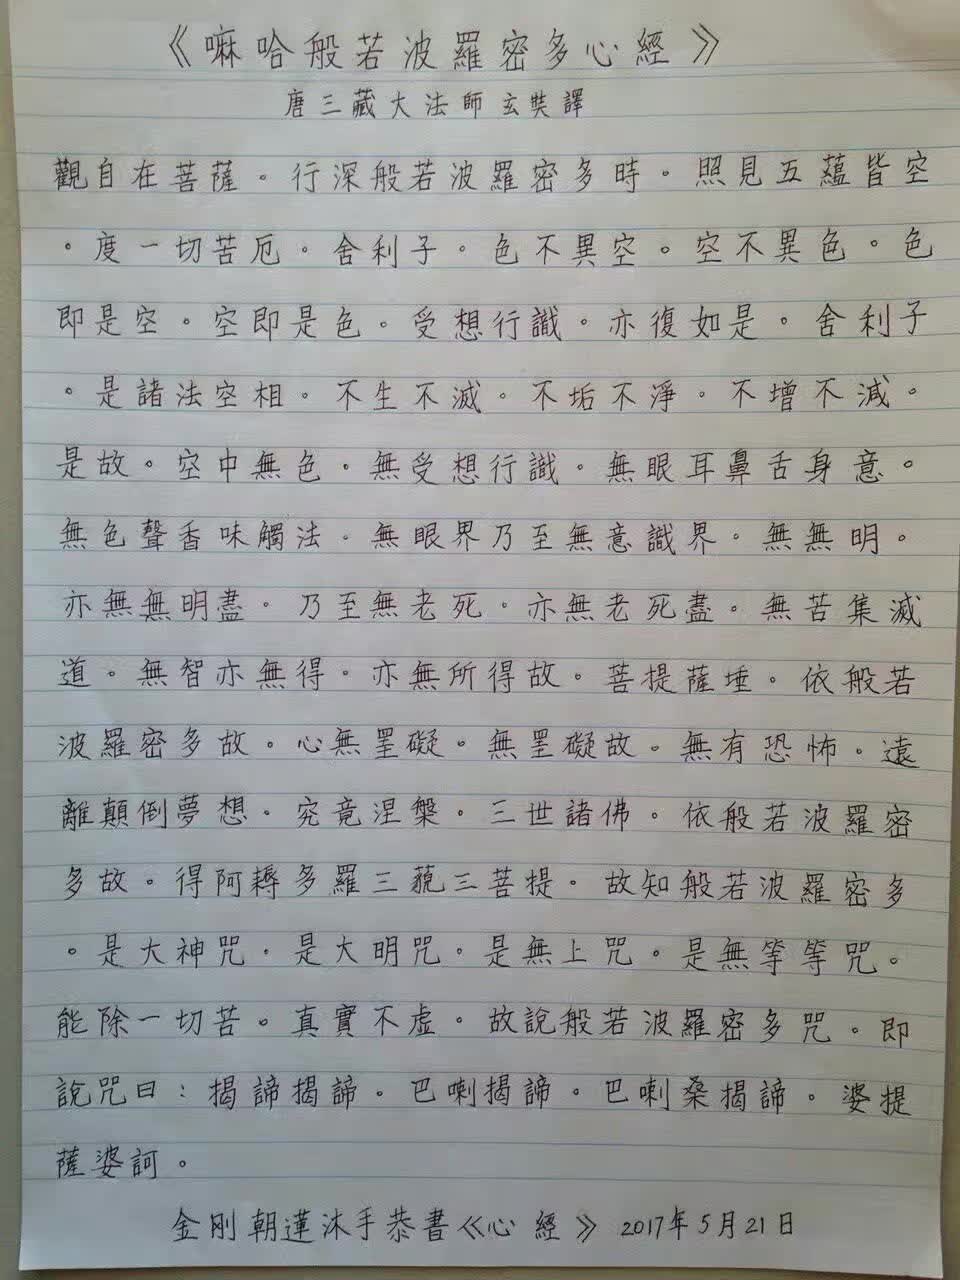 《嘛哈般若波羅密多心經》
唐三藏大法師玄奘譯
觀自在菩薩。行深般若波羅密多時。照見五蘊皆空
。度一切苦厄。舍利子。色不異空。空不異色。色
即是空。空即是色。受想行識。亦復如是。舍利子
。是諸法空相。不生不滅。不垢不淨。不增不減。
是故。空中無色。無受想行識。無眼耳鼻舌身意。
無色聲香味觸法。無眼界乃至無意識界。無無明。
亦無無明盡。乃至無老死。亦無老死盡。無苦集滅
道。無智亦無得。亦無所得故。菩提薩埵。依般若
波羅密多故。心無罣礙。無罣礙故。無有恐怖。遠
離顛倒夢想。究竟涅槃。三世諸佛。依般若波羅密
多故。得阿耨多羅三藐三菩提。故知般若波羅密多
。是大神咒。是大明咒。是無上咒。是無等等咒。
能除一切苦。真實不虛。故說般若波羅密多咒。即
說咒曰：揭諦揭諦。巴喇揭諦。巴喇桑揭諦。婆提
薩婆訶。
金剛朝蓮沐手恭書《心經》2017年5月21日